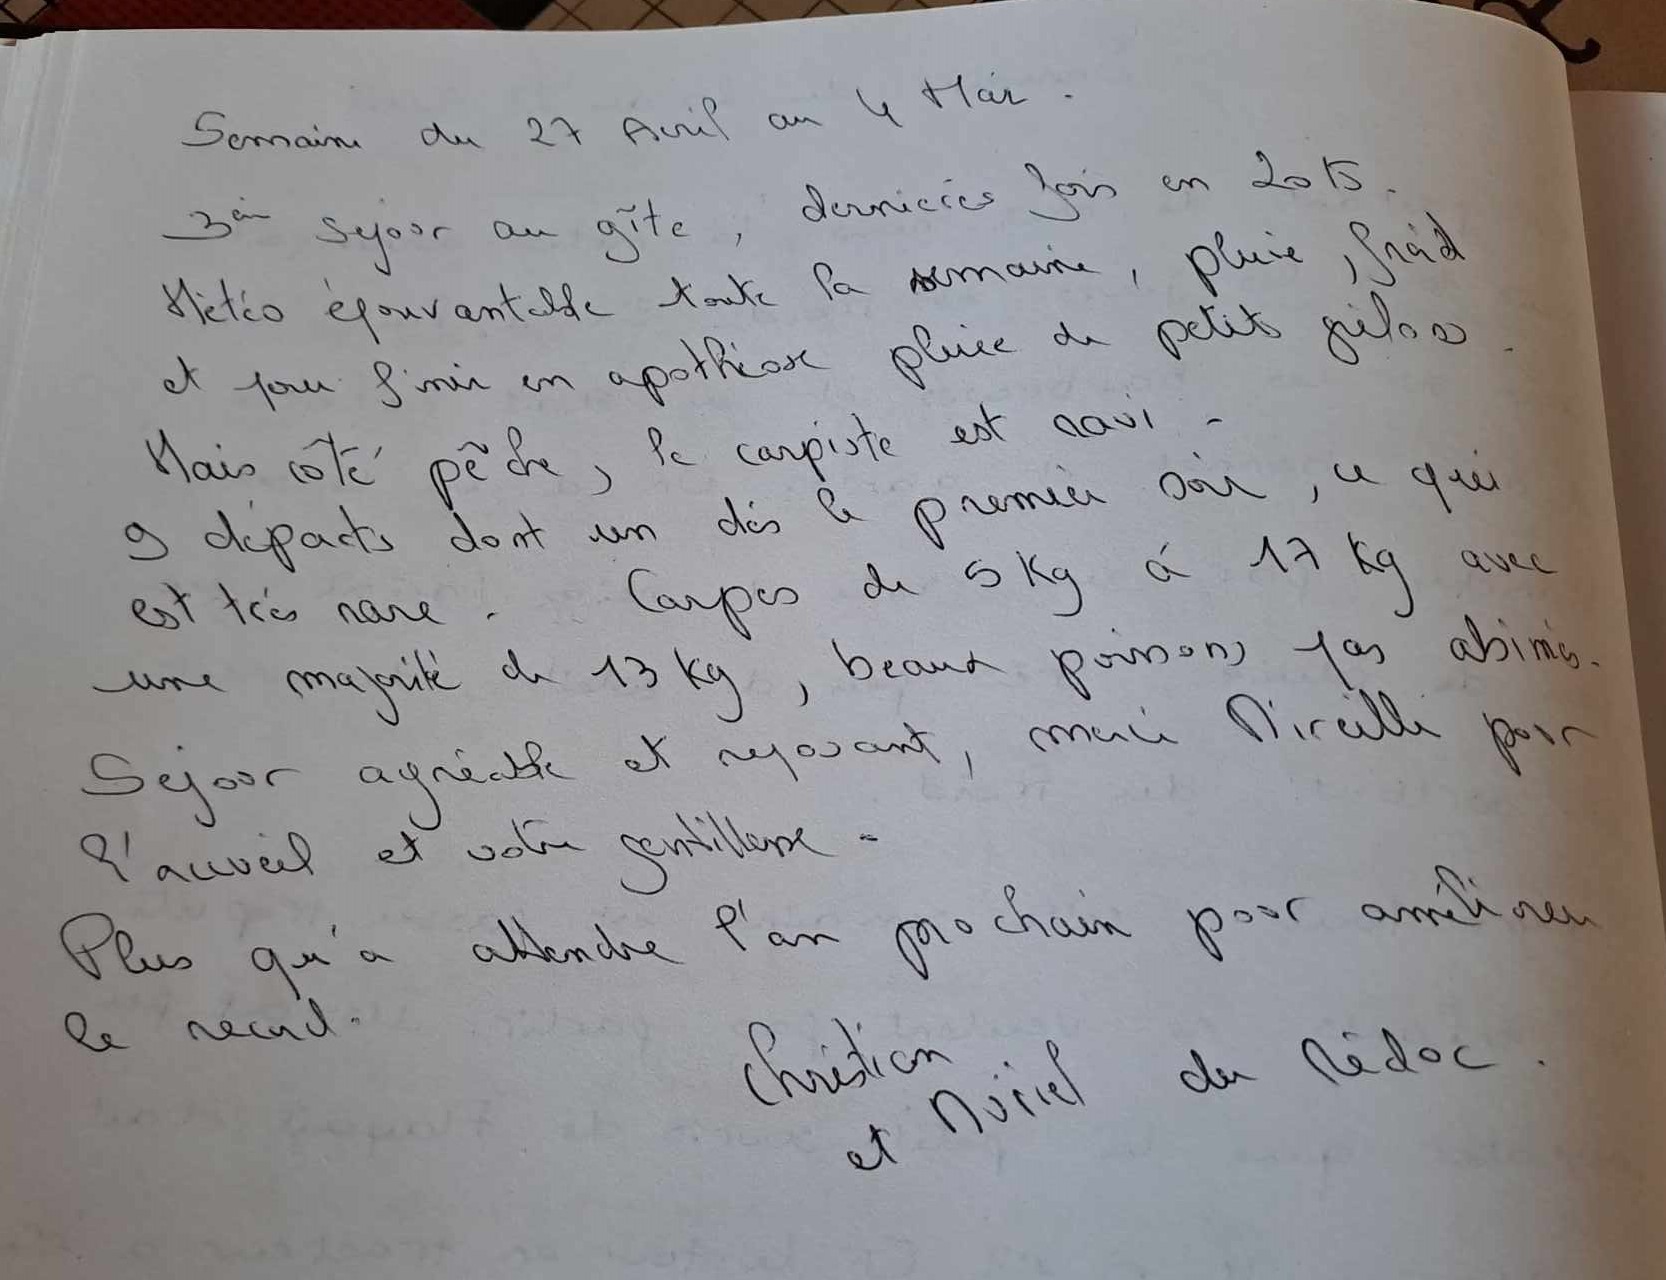 Semaine du 27 Avril au 4 Mai.
3èm séjour au gîte, dernières fois en 2015.
Météo épouvantable toute la semaine, pluie, froid
et pour finir en apothéose pluie de petits grêlons.
Mais côté pêche, le carpiste est ravi -
9 départs dont un dès le premier soir, ce qui
est très rare. Carpes de 5 Kg à 17 Kg avec
une majorité de 13 Kg, beaux poissons pas abimés.
Séjour agréable et reposant, merci Mireille pour
l'accueil et votre gentillesse -
Plus qu'a attendre l'an prochain pour améliorer
le record.
Christian
et Muriel du Médoc.